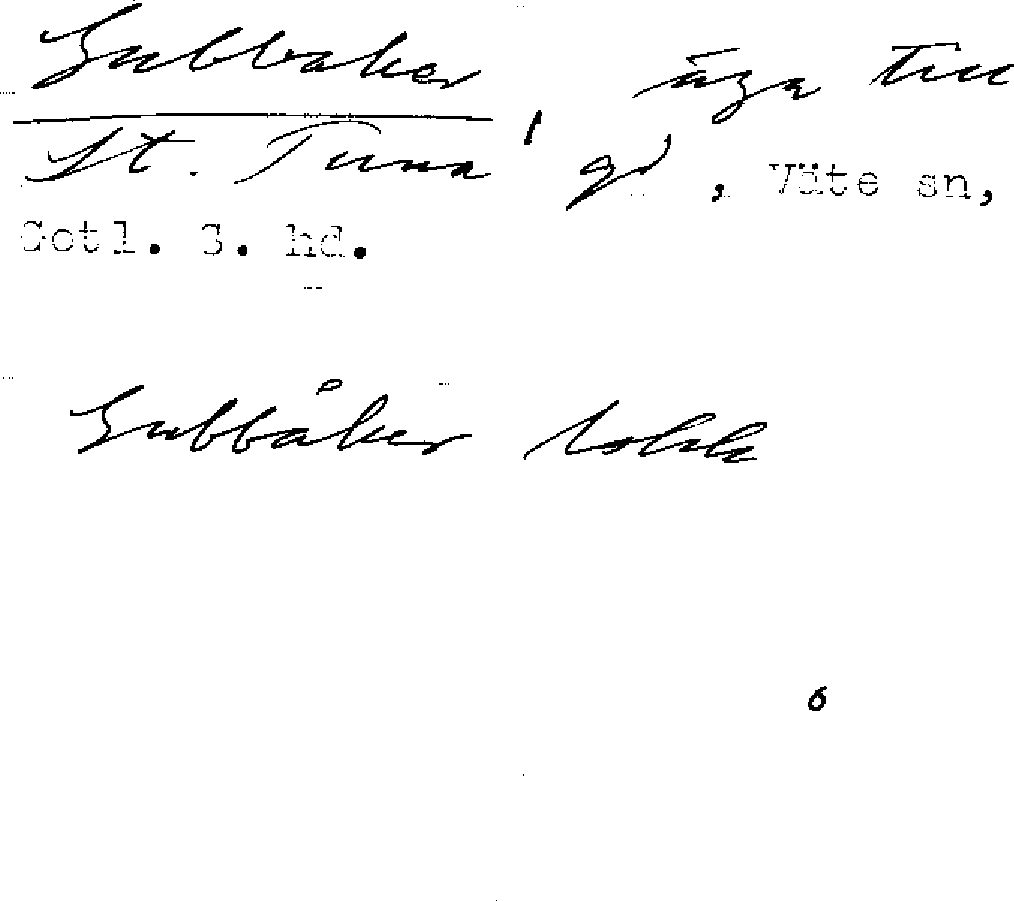 Gubbaker, äga till
St. Tuna gd, Väte sn,
Gotl. S. hd.
Gubbåker
6